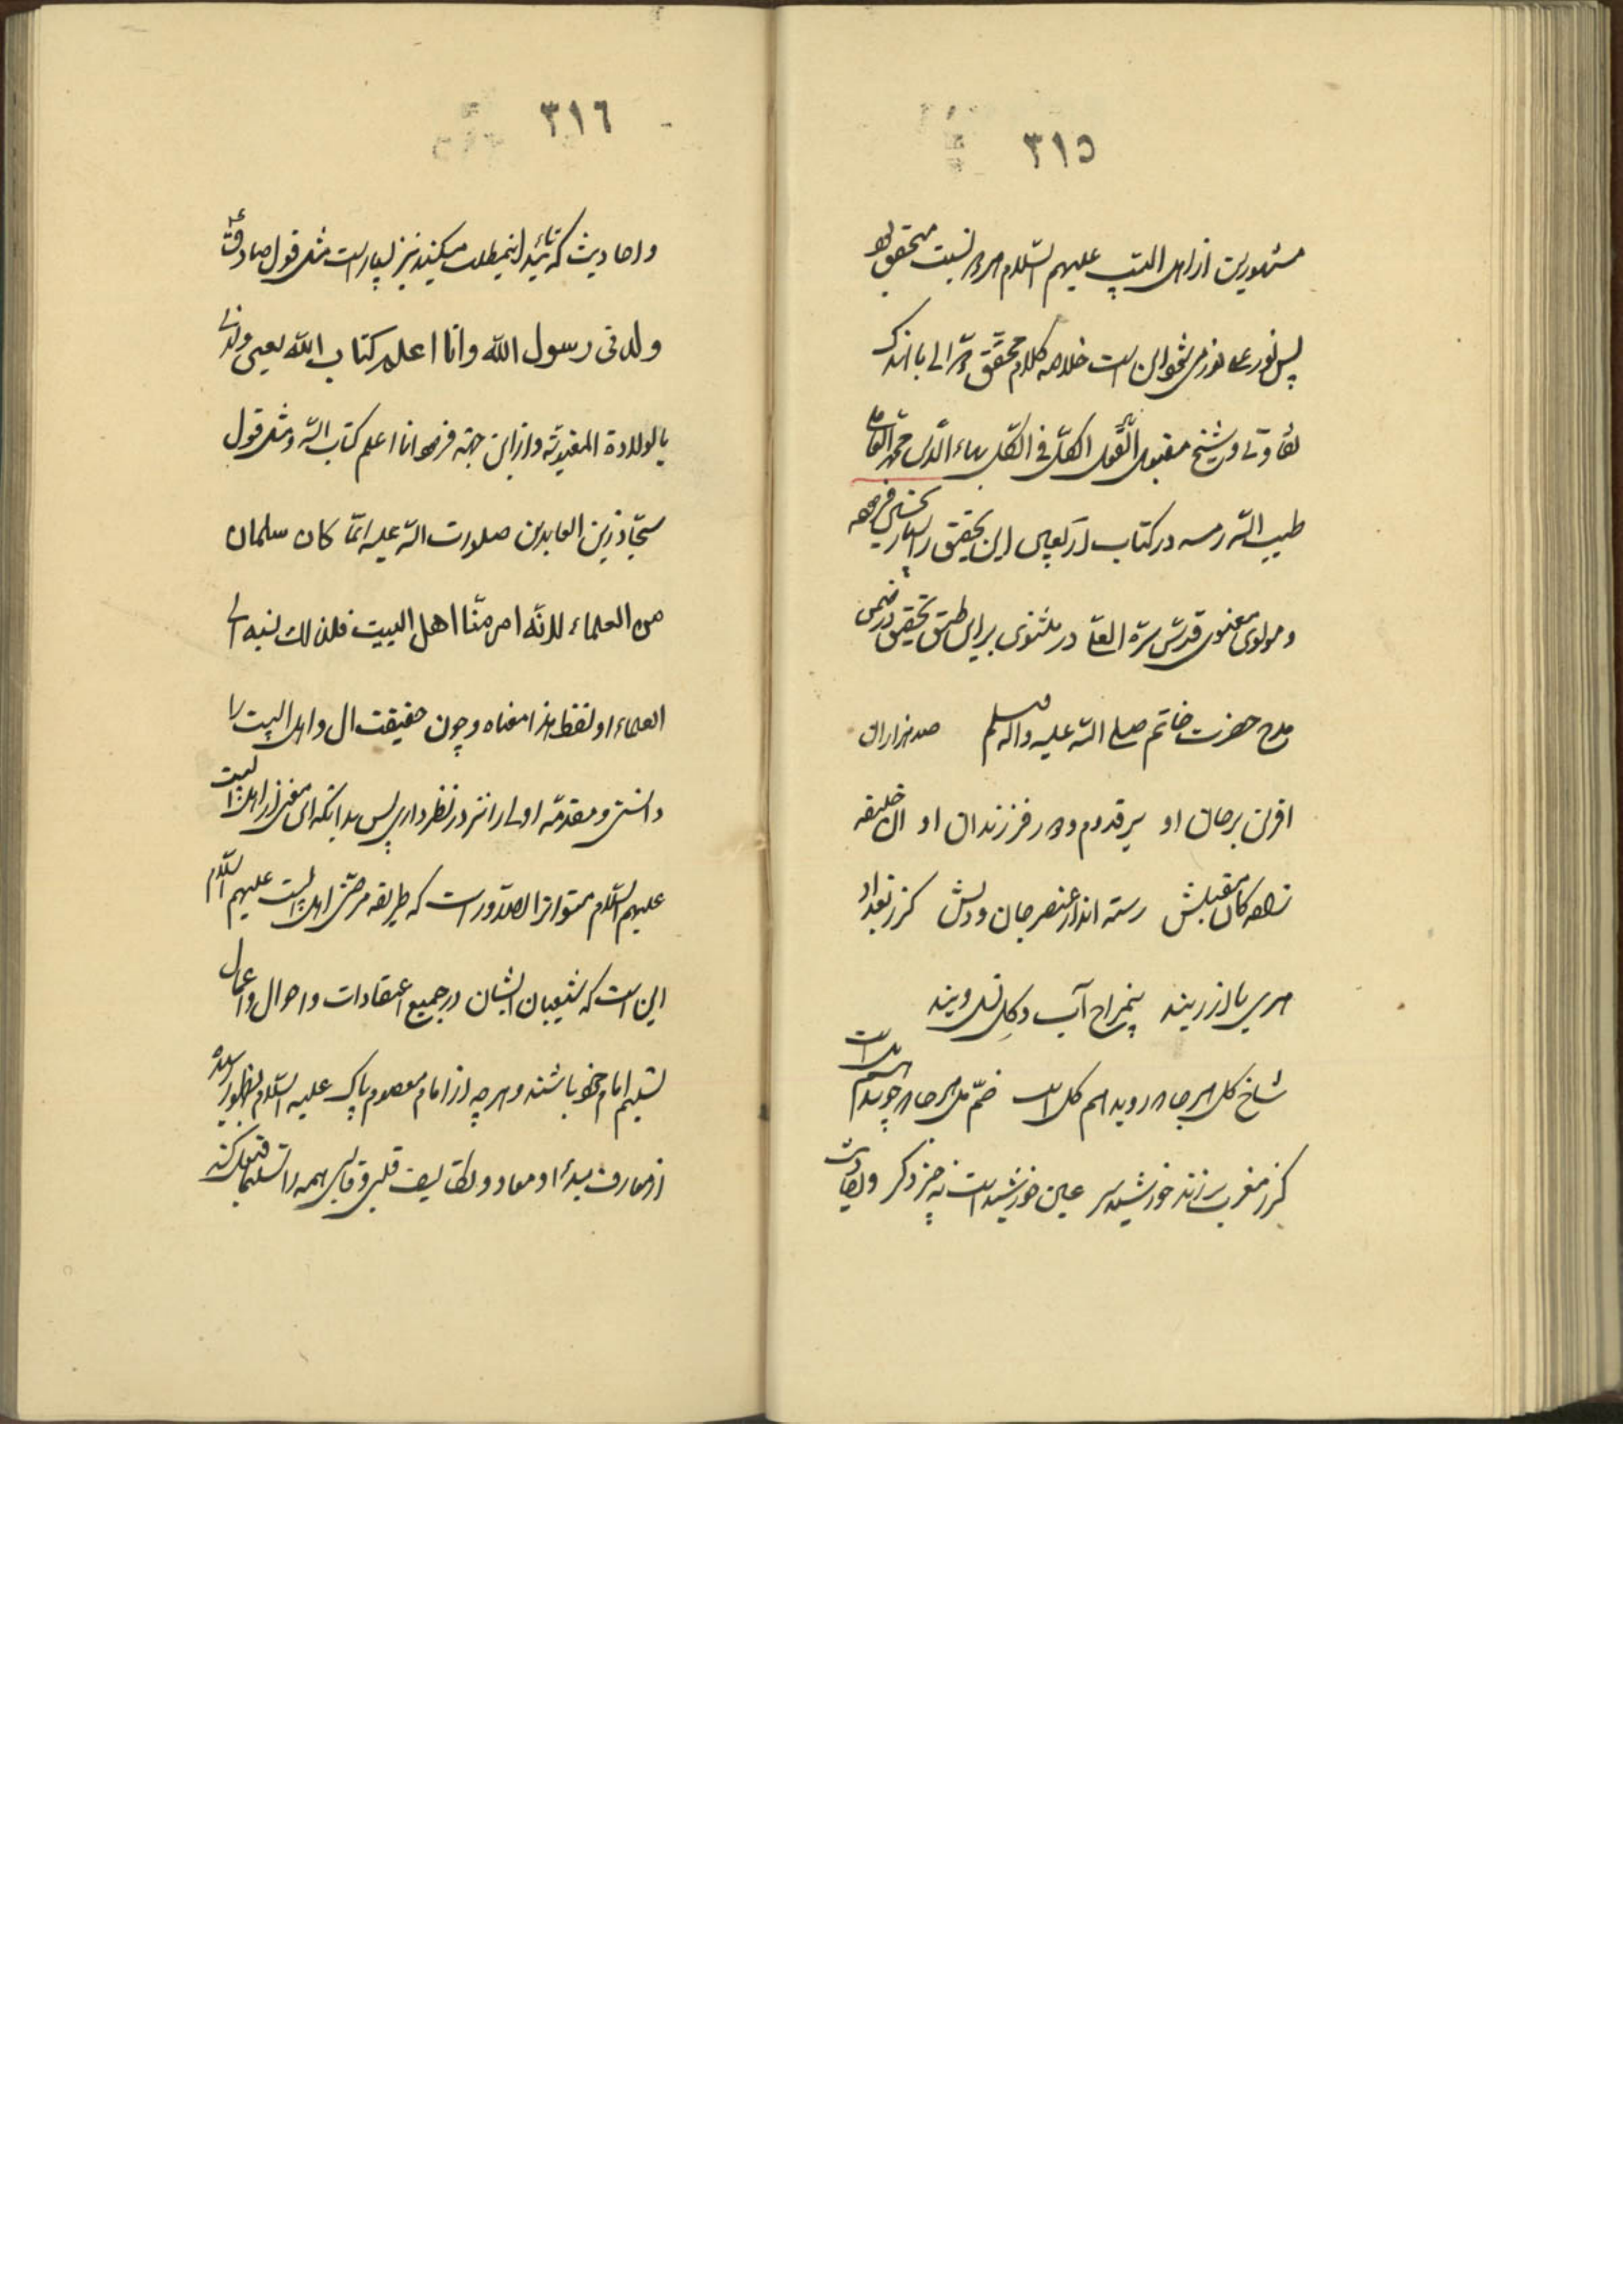 ٣١٥
مشهورین از اهل البیت علیهم السّلام هر دو نسبت متحقق بود
پس نور علی نور می شود این است خلاصه کلام محقق دوّانی با اندک
تفاوتی و شیخ مقبول القول الکلّ فی الکلّ بهاء الدّین محمّد العاملی
طیب الله رمسه در کتاب اربعین این تحقیق را بسیار تحسین فرموده
و مولوی معنوی قدّس سرّه العلی در مثنوی بر این طبق تحقیق در ضمن
مدح حضرت خاتم صلی الله علیه و آله و سلم صد هزاران
آفرین بر جان او بر قدوم و دور فرزندان او آن خلیفه
زادهکان مقبلش رسته اند از عنصر جان و دلش گر ز بغداد
هری یا از ریند بیمزاج آب و گل نسل ویند
شاخ گل هر جا که روید هم گل است خمّ مل هر جا که جوشد هم مل است
گر ز مغرب سر زند خورشید سر عین خورشید است نه چیز دگر
٣١٦
و احادیث که تائید اینمطلب میکنند نیز بسیار است مثل قول صادق ع
ولدنی رسول الله وانا اعلم کتاب الله یعنی ولدنی
بالولادة المعنویّة و از این جهة فرمود انا اعلم کتاب الله و مثل قول
سجّاد زین العابدین صلوات الله علیه انّما کان سلمان
من العلماء لانّه امرء منّا اهل البیت فلذلک نسبه الی
العلماء و لفظ هذا معناه و چون حقیقت آل و اهل البیت را
دانستی و مقدّمه اولی را نیز در نظر داری پس بدانکه این معنی از اهل البیت
علیهم السّلام متواتر الصّدور است که طریقه مرضیّه اهل البیت علیهم السّلام
این است که شیعیان ایشان در جمیع اعتقادات و احوال و اعمال
تسلیم امام خود باشند و هر چه از امام معصوم پاک علیه السّلام بظهور رسیده
از معارف مبدأ و معاد و تکالیف قلبی و قالبی همه را تسلیما قبول کنند